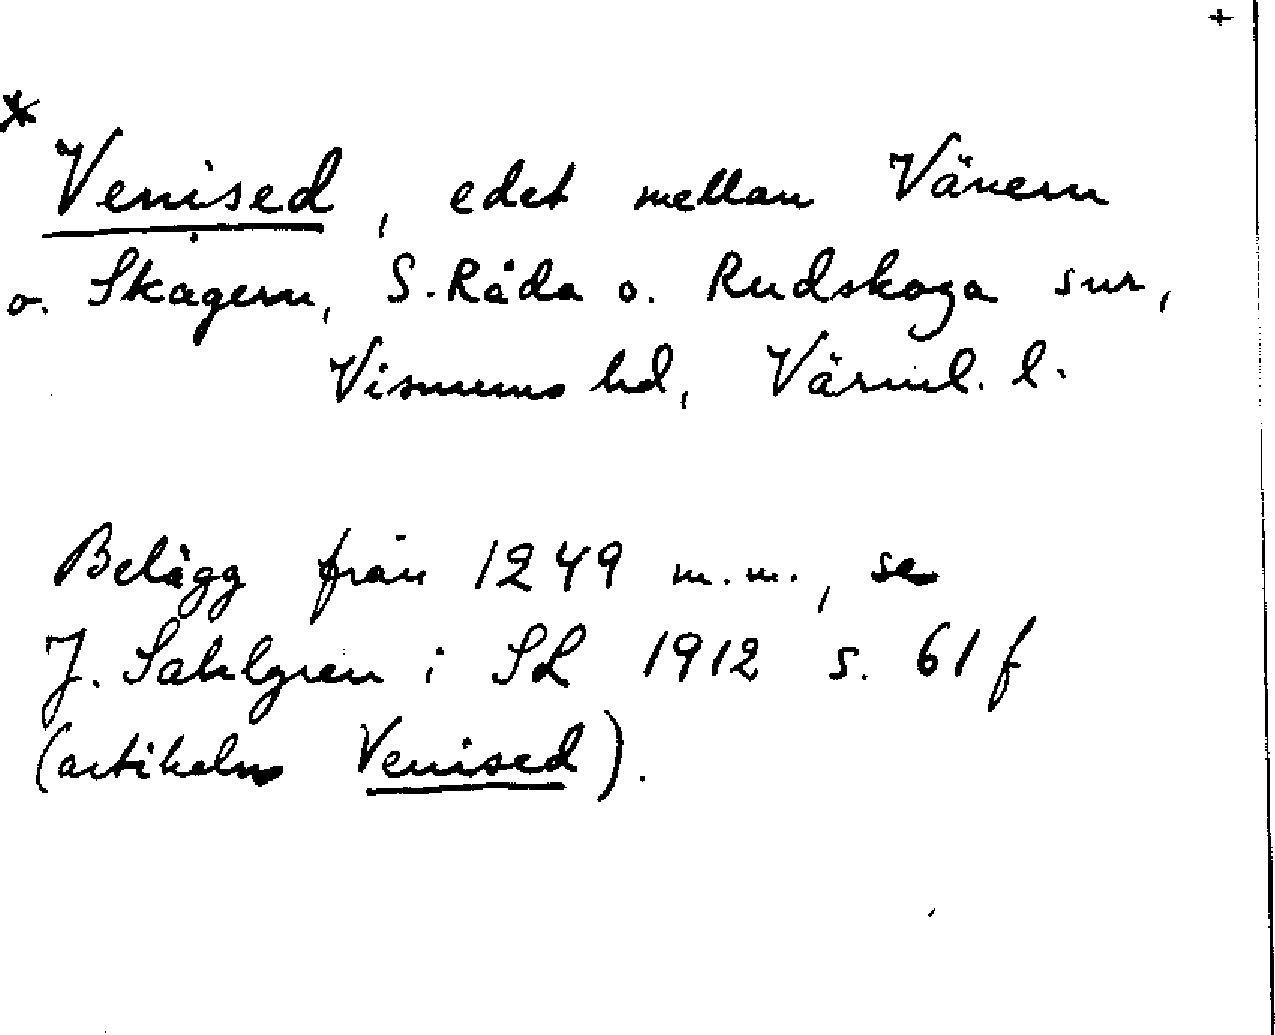 +
*
Venised, edet mellan Vänern
o. Skagern, S. Råda o. Rudskoga snr,
Visnums hd, Värml. l.
Belägg från 1249 m.m., se
J. Sahlgren i SL 1912 s. 61 f
(artikeln Venised).